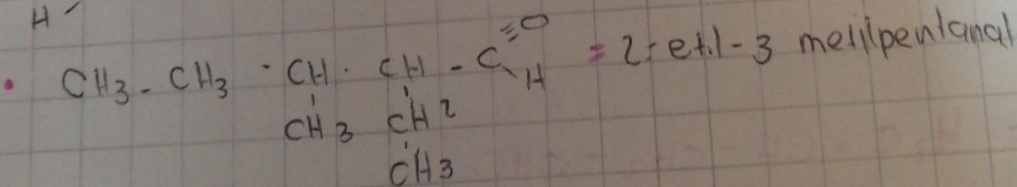 H
• CH3 - CH3 - CH - CH - C =O = 2-etil-3 metilpentanal
H
CH3 CH2
CH3